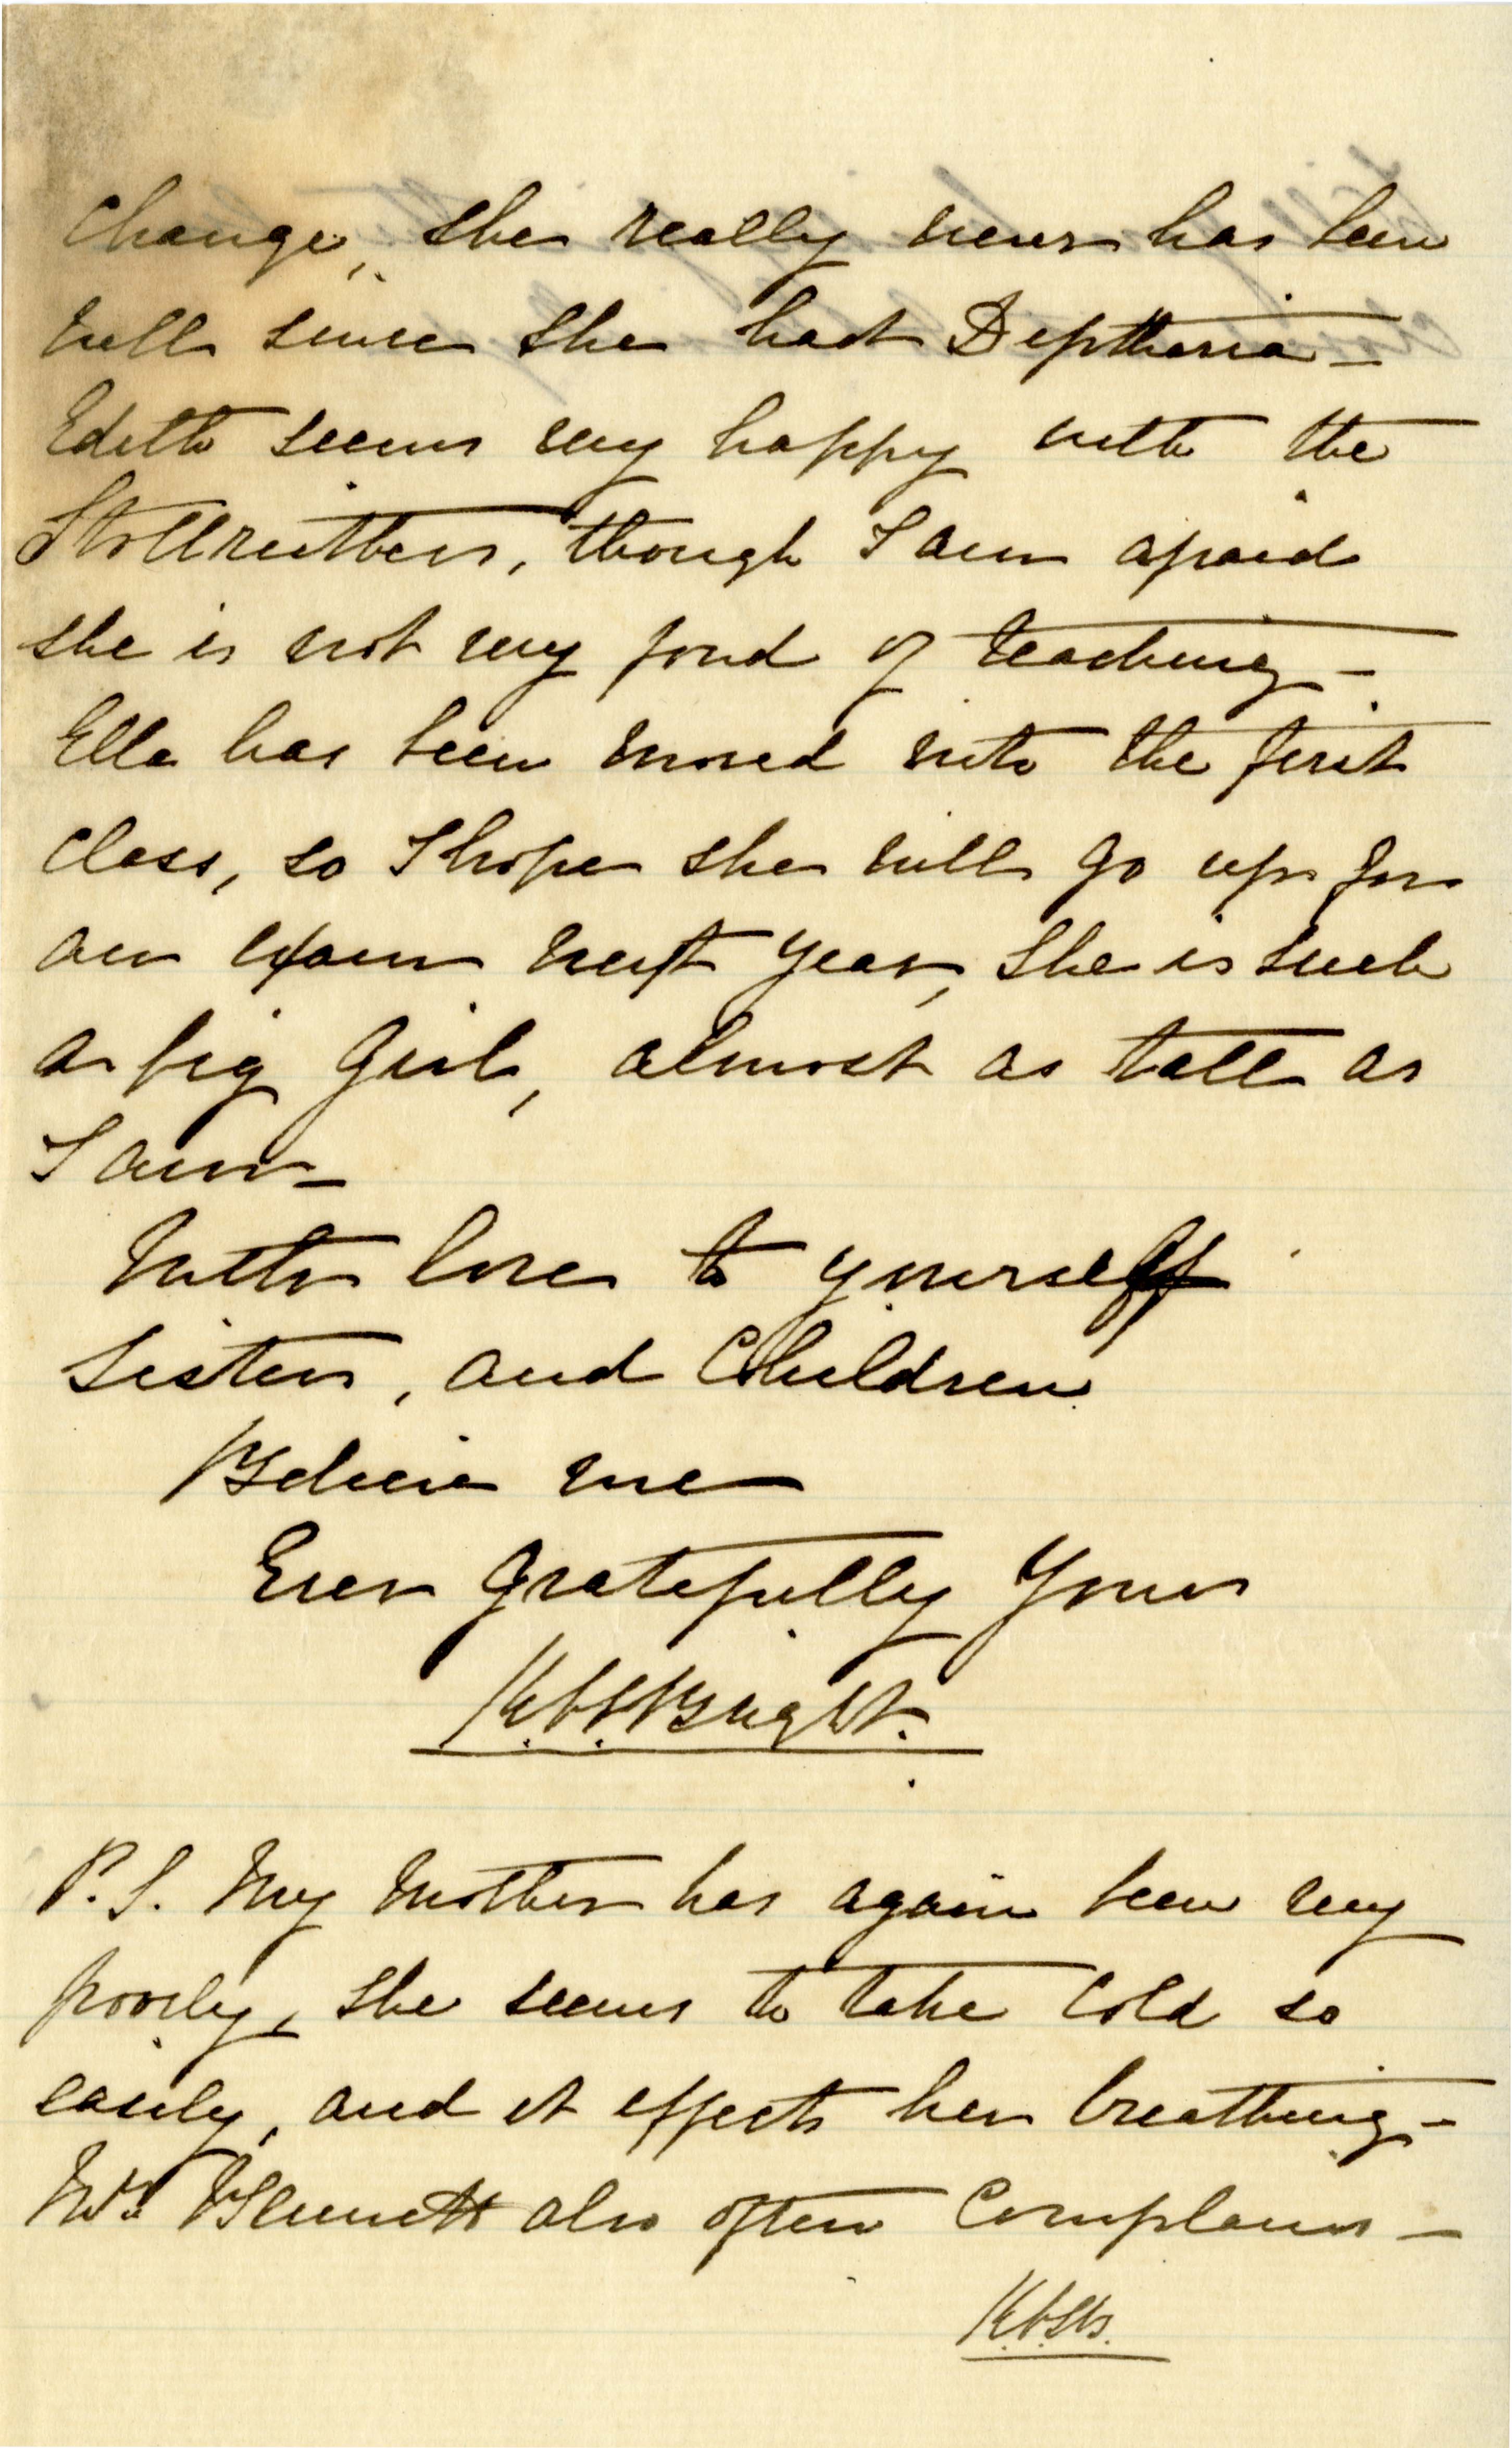 Change, she really never has been
well since she had Deptheria –
Edith seems very happy with the
though I am afraid
she is not very fond of teaching –
Ella has been moved into the first
Class, so I hope she will go up for
an exam next year, she is such
a big girl, almost as tall as
I am –
With love to yourself
Sisters, and Children
Believe me
Ever gratefully Yours
Bright.
P.S. My Mother has again been very
poorly, she seems to take cold so
easily, and it effects her breathing –
Mrs Bennett also often Complains –